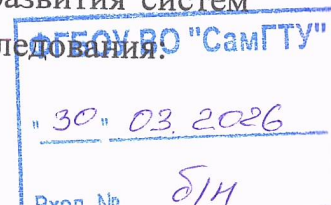 развития систем
ледования:
ФГБОУ ВО "СамГТУ"
"30" 03. 2026
Вход. № б/н